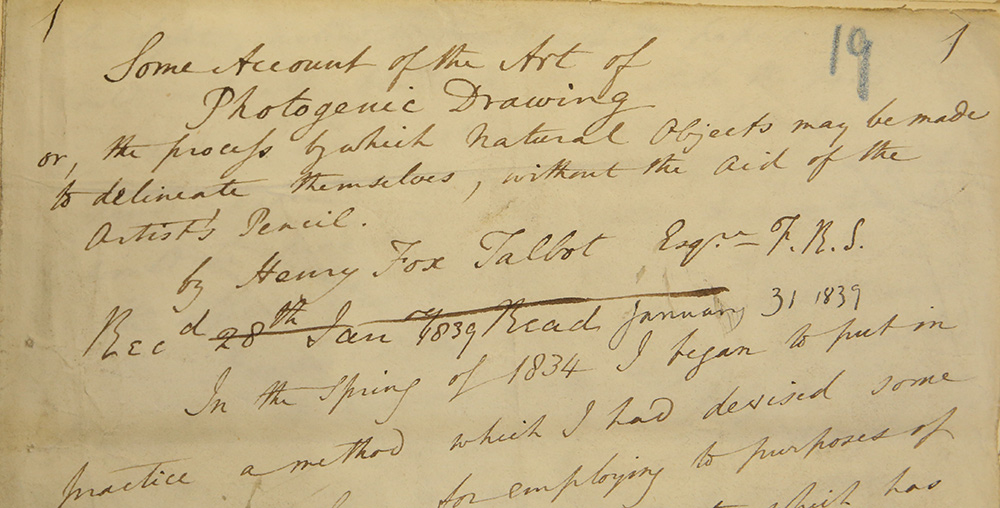 1
19
1
Some Account of the Art of
Photogenic Drawing
or, the process by which Natural Objects may be made
to delineate themselves, without the aid of the
Artist's Pencil.
by Henry Fox Talbot Esqre F.R.S.
Recd 28th Jany 1839 Read January 31 1839
In the Spring of 1834 I began to put in
practice a method which I had devised some
for employing to purposes of
which has